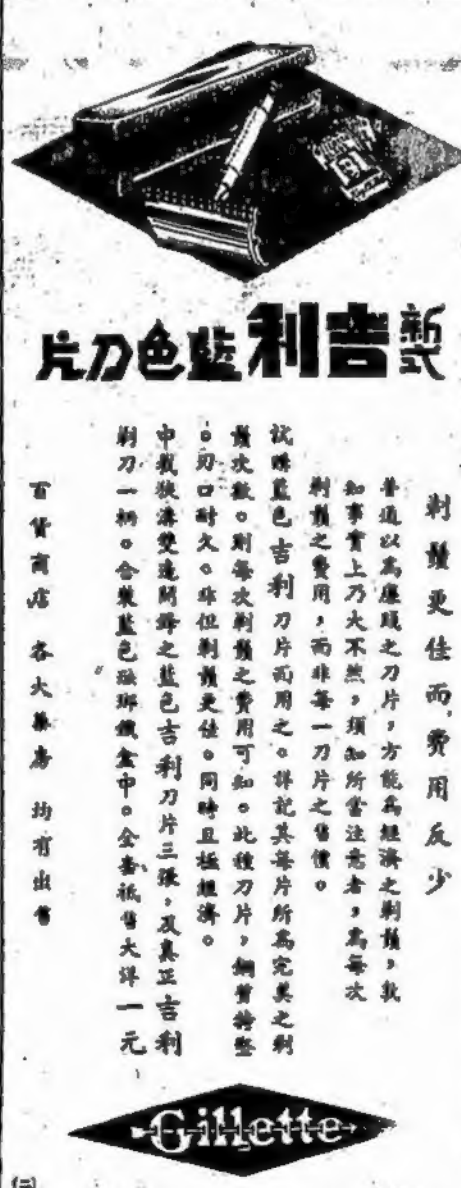 新式吉利藍色刀片
剃鬚更佳而費用反少
普通以為廉賤之刀片，方能為經濟之剃鬚，孰
知事實上乃大不然，須知所當注意者，為每次
剃鬚之費用，而非每一刀片之售價。
試購藍色吉利刀片而用之。詳記其每片所為完美之剃
鬚次數。則每次剃鬚之費用可知。此種刀片，鋼質特堅
。刃口耐久。非但剃鬚更佳。同時且極經濟。
中裁狹溝雙邊開鋒之藍色吉利刀片三張，及真正吉利
剃刀一柄。合裝藍色琺瑯鐵盒中。全套祗售大洋一元
百貨商店 各大藥房 均有出售
Gillette
(二)